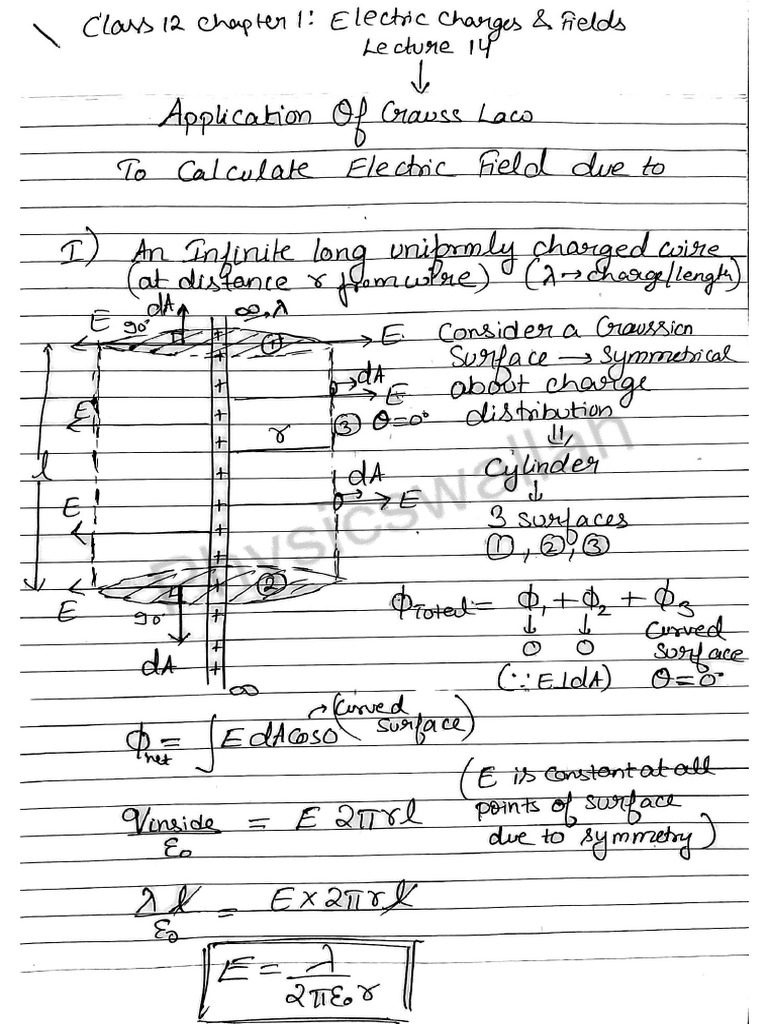 Class 12 chapter 1: Electric Charges & Fields
Lecture 14
↓
Application Of Gauss Law
To Calculate Electric Field due to
I) An Infinite long uniformly charged wire
(at distance r from wire) (λ→charge/length)
dA ∞, λ
E 90° ① E
Consider a Gaussian
Surface → Symmetrical
about charge
distribution
⇓
Cylinder
↓
3 surfaces
①, ②, ③
dA
E
③ θ=0°
r
E
l
dA
E
E
②
E
90°
dA
∞
ϕTotal = ϕ1 + ϕ2 + ϕ3
↓ ↓ Curved
0 0 surface
(∵ E⊥dA) θ=0°
ϕnet = ∫ E dA cos0 → (Curved surface)
qinside/ε0 = E 2πrl
(E is constant at all
points of surface
due to symmetry)
λ l/ε0 = E × 2πr l
E = λ/2πε0 r
Physicswallah